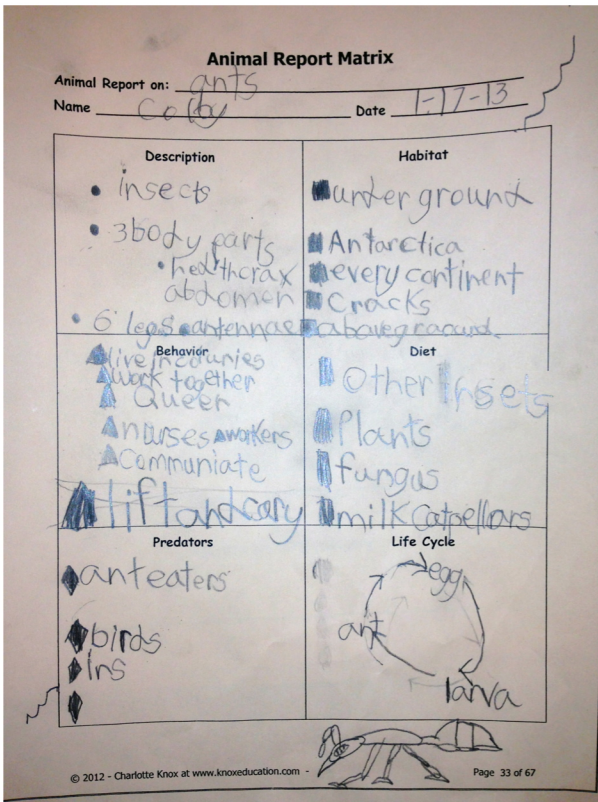 Animal Report Matrix
Animal Report on: ants
Name Colby Date 1-17-13
Description
insects
3 body parts
head thorax
abdomen
6 legs antennae
Habitat
underground
Antarctica
every continent
cracks
above ground
Behavior
live in colunies
work together
Queen
nurses workers
Communiate
lift and cary
Diet
Other Insets
Plants
fungus
milk catpellars
Predators
anteaters
birds
Ins
Life Cycle
egg
larva
ant
© 2012 - Charlotte Knox at www.knoxeducation.com - Page 33 of 67